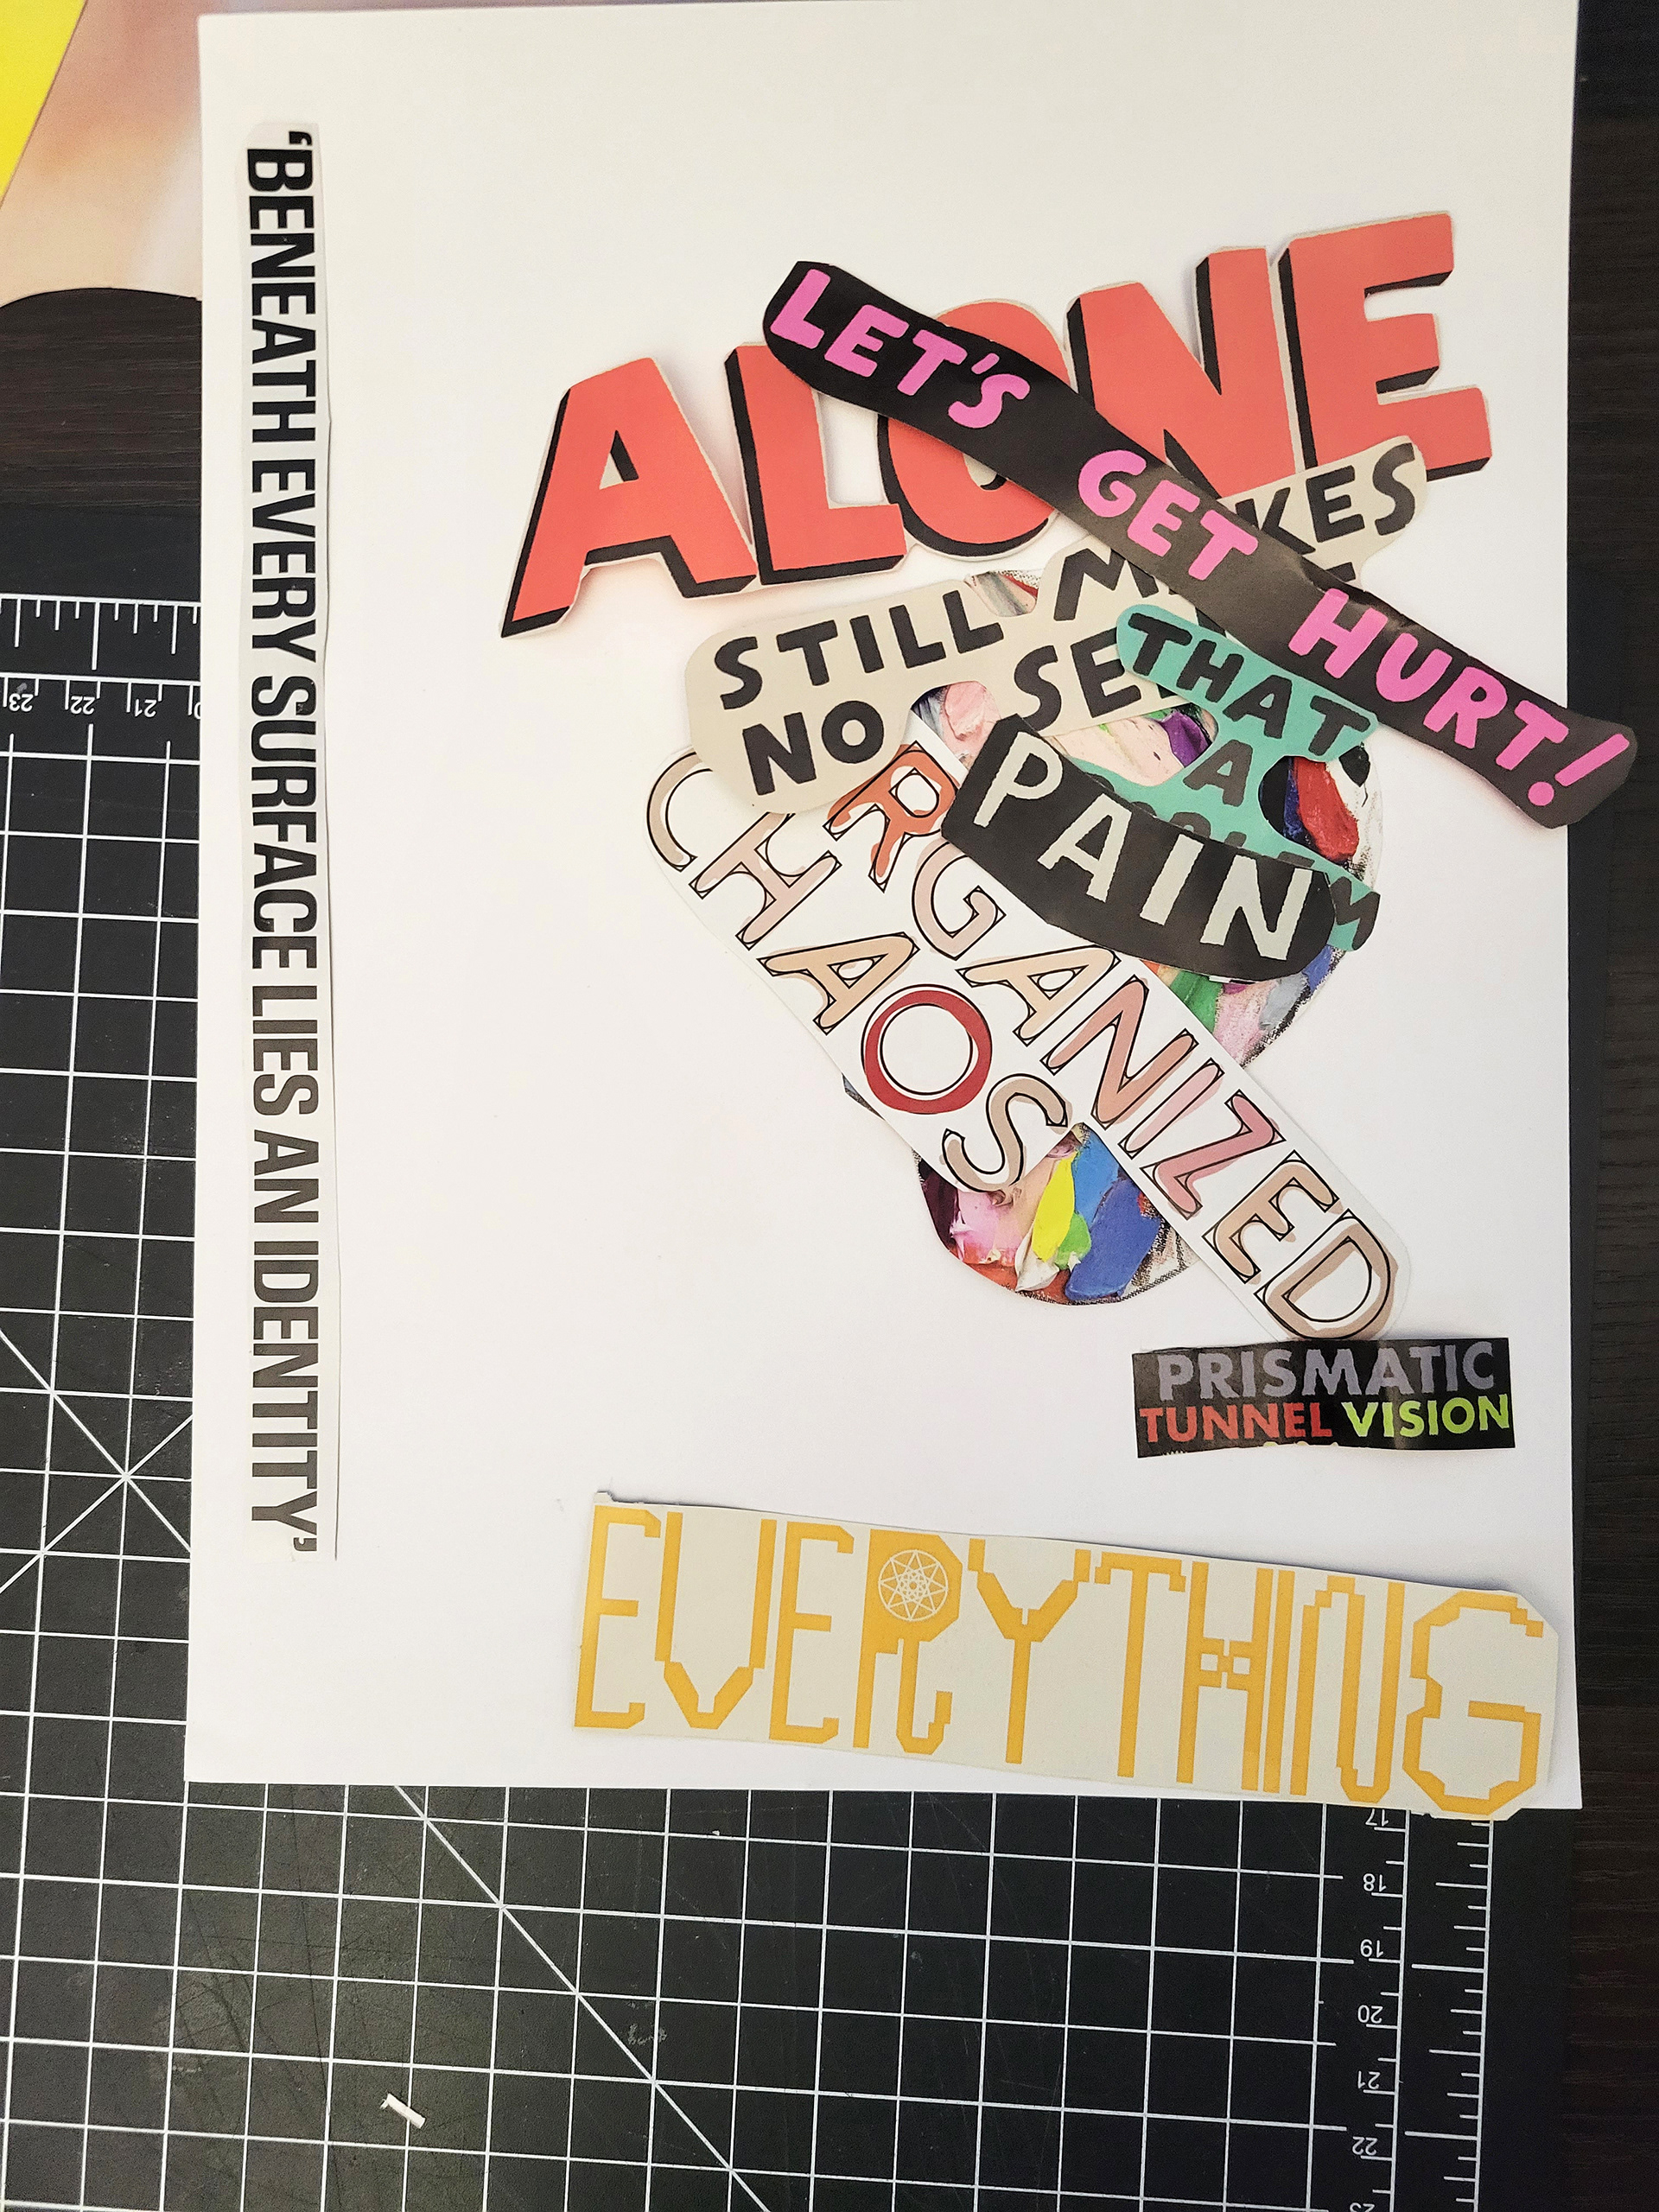 'BENEATH EVERY SURFACE LIES AN IDENTITY'
ALONE
LET'S GET HURT!
STILL MAKES
NO SE
THAT
A
PAIN
RGANIZED
CHAOS
PRISMATIC
TUNNEL VISION
EVERYTHING
23 22 21
17
18
19
20
21
22
23